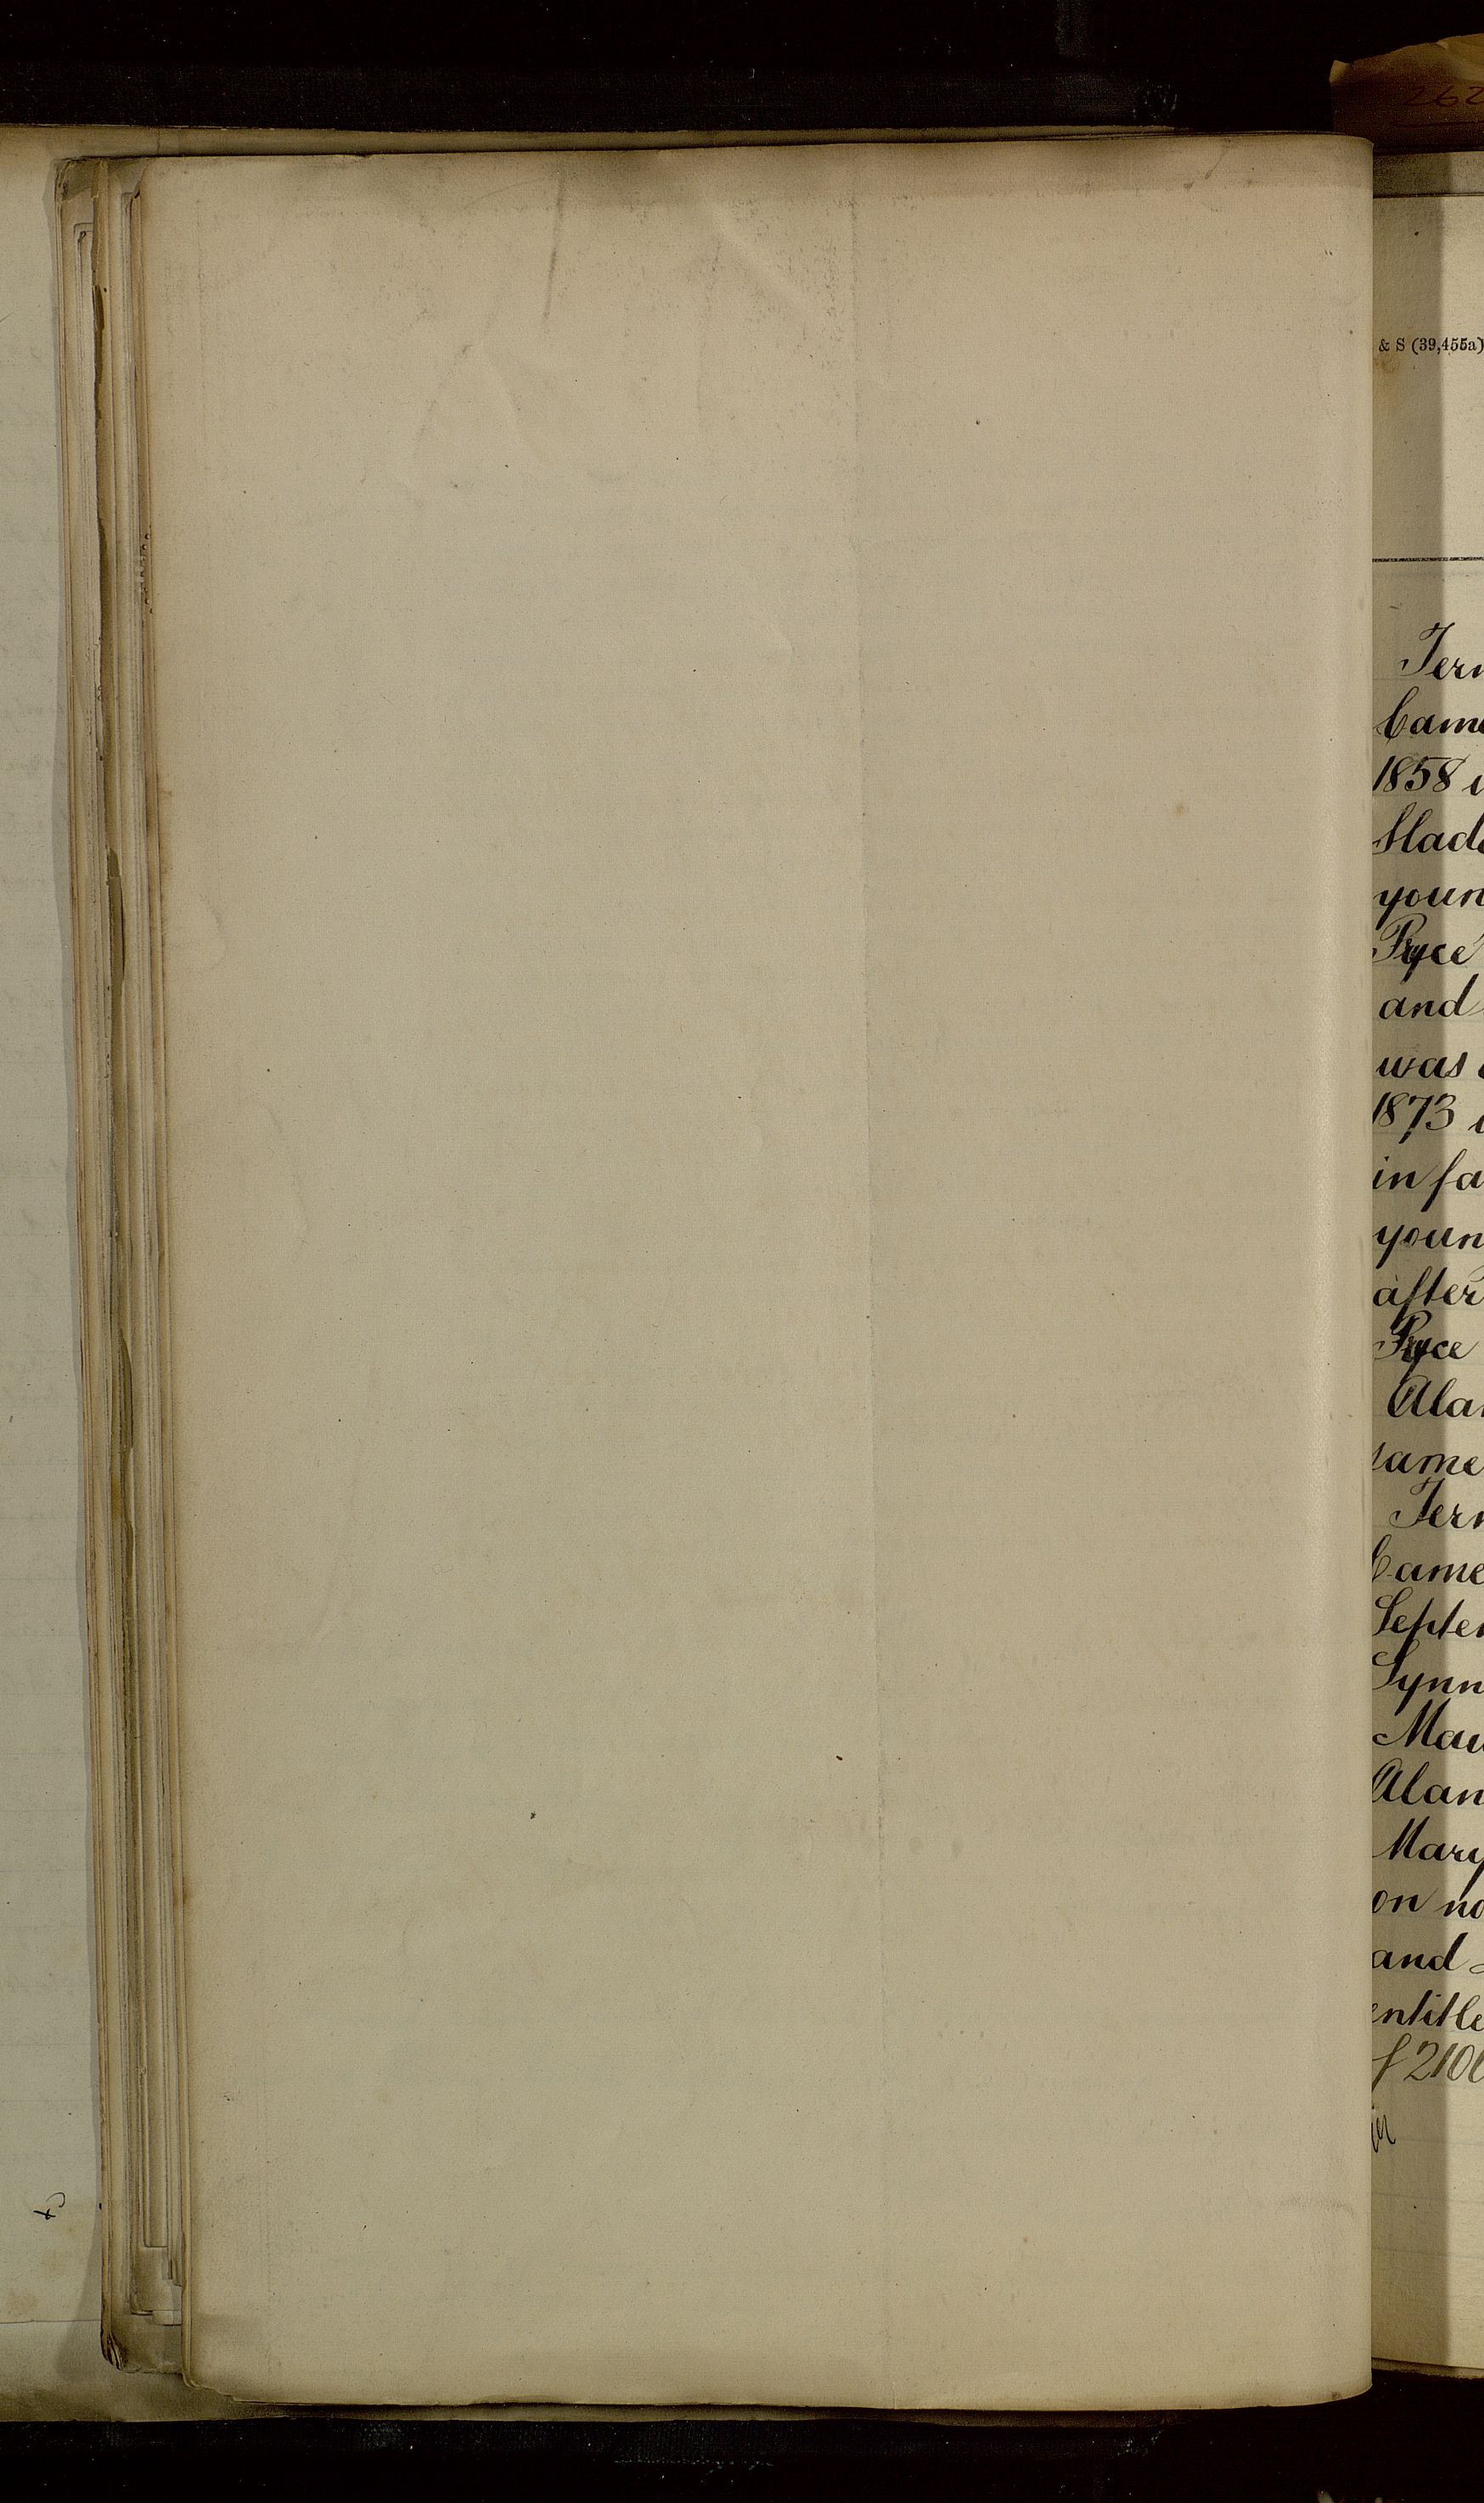 262
& S (39,455a)
Tern
Came
1858
Slade
youn
Pryce
and
was
1873
in fa
youn
after
Pryce
Alan
same
Tern
Came
Septem
Lynn
Mau
Alan
Mary
on no
and
entitle
£2100